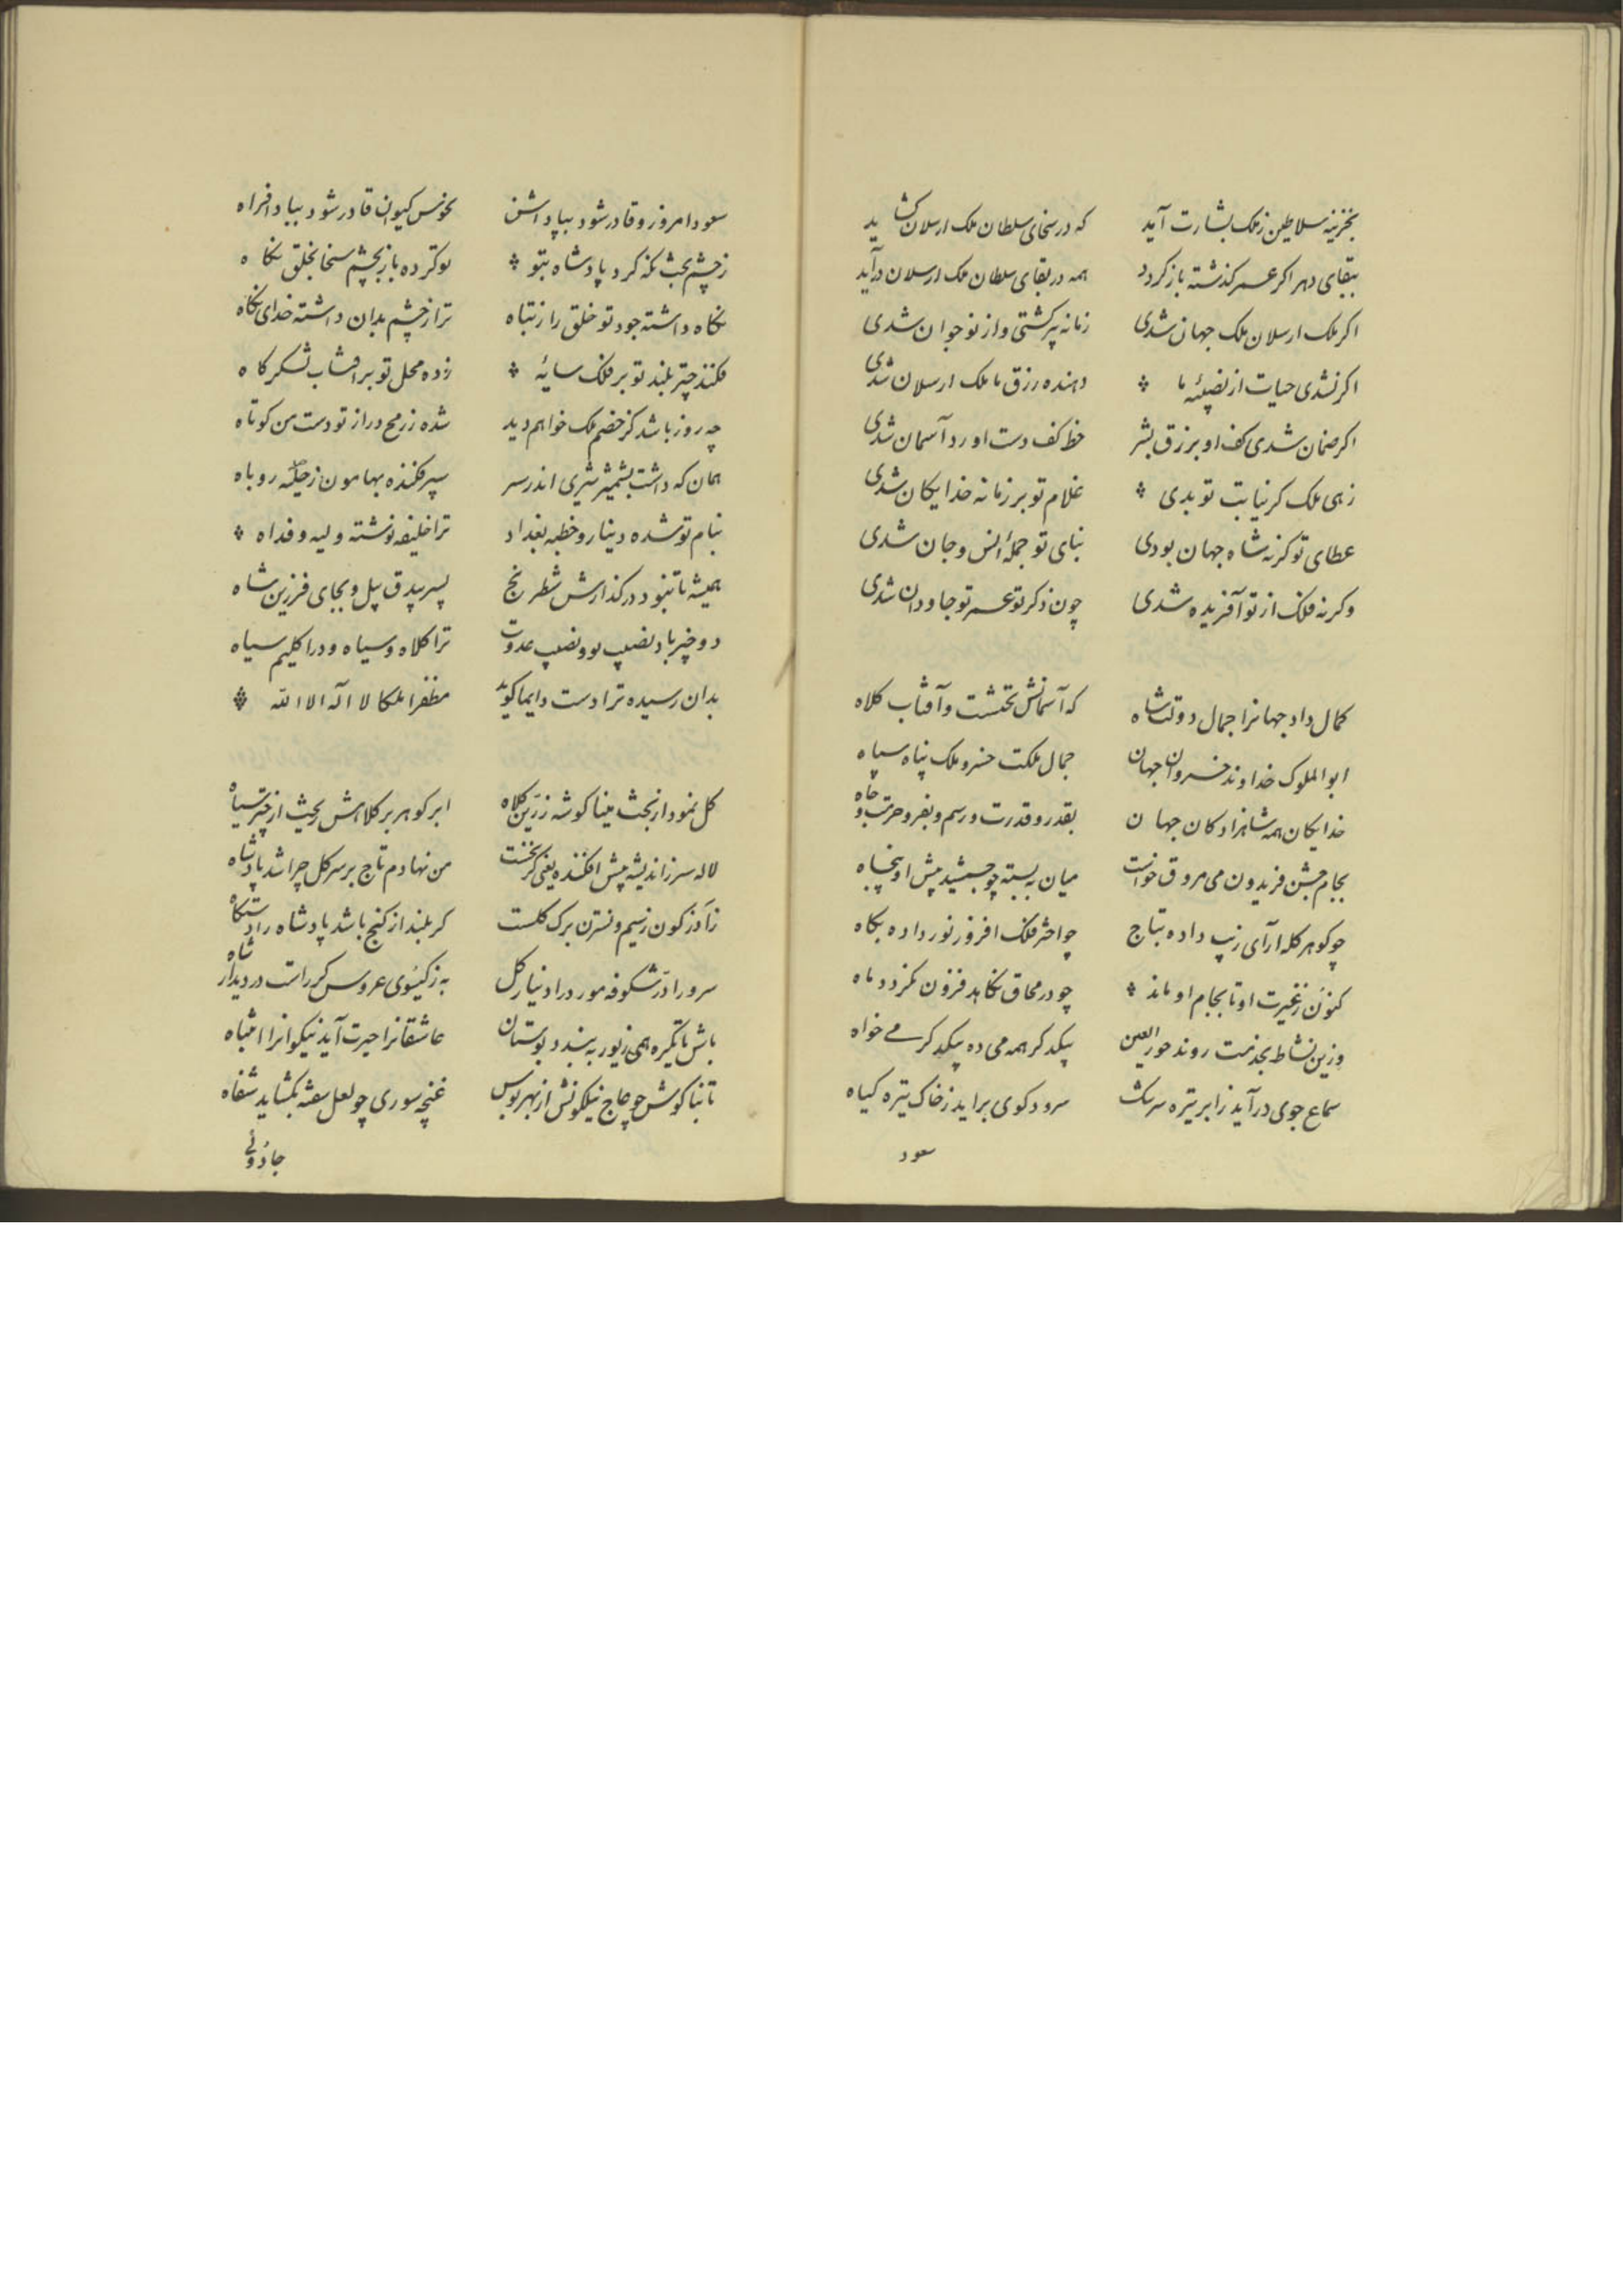 بخزینه سلاطین زملک بشارت آید که در سخای سلطان ملک ارسلان کشاید
ببقای دهر اکر عمر کذشته باز کردد همه در بقای سلطان ملک ارسلان درآید
اکر ملک ارسلان ملک جهان شدی زمانه پیر کشتی و از نو جوان شدی
اکر نشدی حیات از نصیبهٔ ما دهنده رزق ما ملک ارسلان شدی
اکر ضمان شدی کف او بر زرق بشر خط کف دست او رد آسمان شدی
زهی ملک کر نیابت تو بدی غلام تو بر زمانه خدایکان شدی
عطای تو کرنه شاه جهان بودی بنای تو جملهٔ انس و جان شدی
وکرنه فلک از تو آفریده شدی چون ذکر تو عمر تو جاودان شدی
کمال داد جهانرا جمال دولتشاه که آسمانش تختست و آفتاب کلاه
ابوالملوک خداوند خسروان جهان جمال ملکت خسرو ملک پناه سپاه
خدایکان همه شاهزادکان جهان بقدر و قدرت و رسم و بفر و حرمت و جاه
بجام جشن فریدون می مروق خواست میان ببسته چو جمشید پیش او پنجاه
چو کوهر کله آرای زیب داده بتاج چو اختر فلک افروز نور داده بکاه
کنون زغیرت او تا بجام او ماند چو در محاق نکاهد فزون نکردد ماه
وزین نشاط بخدمت روند حورالعین پیکد کر همه می ده پیکد کر می خواه
سماع جوی درآید زابر تیره سرشک سرود کوی براید زخاک تیره کیاه
سعود
سعود امروز و قادر شود بپاداشن نحوس کیوان قادر شود ببادافراه
زچشم بخت نکه کرد پادشاه بتو تو کرده باز بچشم سخا بخلق نکاه
نکاه داشته جود تو خلق را زتباه ترا زچشم بدان داشته خدای نکاه
فکند چتر بلند تو بر فلک سایهٔ زده محل تو بر افتاب لشکرکاه
چه روز باشد کز خصم ملک خواهم دید شده زرمح دراز تو دست من کوتاه
همان که داشت بشمشیر شیری اندر سر سپر فکنده بهامون زحیلهٔ روباه
بنام تو شده دینار و خطبه بغداد ترا خلیفه نوشته ولیه و فداه
همیشه تا بنبود در کذارش شطرنج پسر بیدق پیل و بجای فرزین شاه
دو چیز باد نصیب تو و نصیب عدوت ترا کلاه و سیاه و ورا کلیم سیاه
بدان رسیده ترا دست دایما کوید مظفرا ملکا لا اله الا الله
کل نمود از بخت مینا کوشه زرین کلاه ابر کوهر بر کلاهش ریخت از چتر سیاه
لاله سر زاندیشه پیش افکنده یعنی کز نخست من نهادم تاج بر سر کل چرا شد پادشاه
زآذرکون زسیم و نسترن برک کلست کر بلند از کنج باشد پادشاه را دستکاه
سرو را در شکوفه مور در او نیار کل به زکیسوی عروس کرراست در دیدار شاه
باش تا یکره همی زیور به بندد بوستان عاشقانرا حیرت آید نیکوانرا اشتباه
تا بناکوش چو عاج نیکوانش از بهر بوس غنچه سوری چو لعل سفته بکشاید شفاه
جادوئی